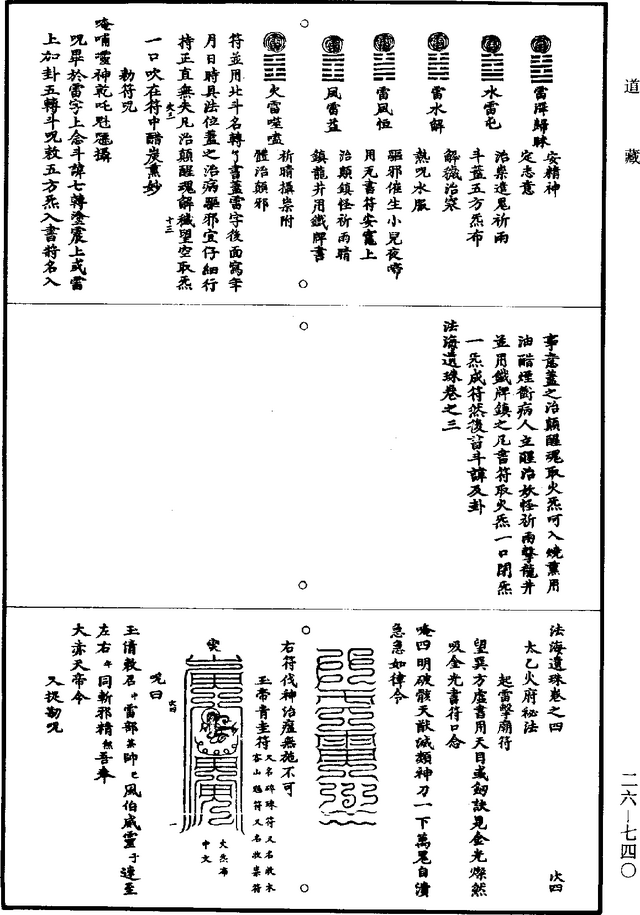 道藏
雷澤歸妹
安精神
定志意
水雷屯
治祟遣鬼祈雨
斗蓋五方炁布
雷水解
解穢治祟
熱呪水服
雷風恒
驅邪催生小兒夜啼
用元書符安竈上
風雷益
治顛鎮怪祈雨晴
鎮龍井用鐵牌書
火雷噬嗑
祈晴攝祟附
體治顛邪
符並用北斗名轉書蓋雷字後面寫年
月日時具法位蓋之治病驅邪宜仔細行
持正直無失凡治顛醒魂解穢望空取炁
一口吹在符中醋炭熏妙
勑符呪
唵哺靈神乾吒魁𩲃攝
呪畢於雷字上念斗諱七轉澄震上或雷
上加卦五轉斗呪敕五方炁入書符名入
事意蓋之治顛醒魂取火炁呵入燒熏用
油醋煙衝病人立醒治妖怪祈雨擊龍井
並用鐵牌鎮之凡書符取火炁一口閉炁
一炁成符然後諳斗諱及卦
法海遺珠卷之三
法海遺珠卷之四
太乙火府秘法
起雷擊廟符
望巽方虛書用天目或劒訣見金光燦然
吸金光書符口念
唵四明破骸天猷滅類神刀一下萬鬼自潰
急急如律令
右符伐神治瘟無施不可
玉帝青圭符
又名碎珠符又名收水
呪曰
玉清敕召雷部風伯威靈速至
左右同斬邪精吾奉
大赤天帝令
又捉勘呪
二六—七四〇